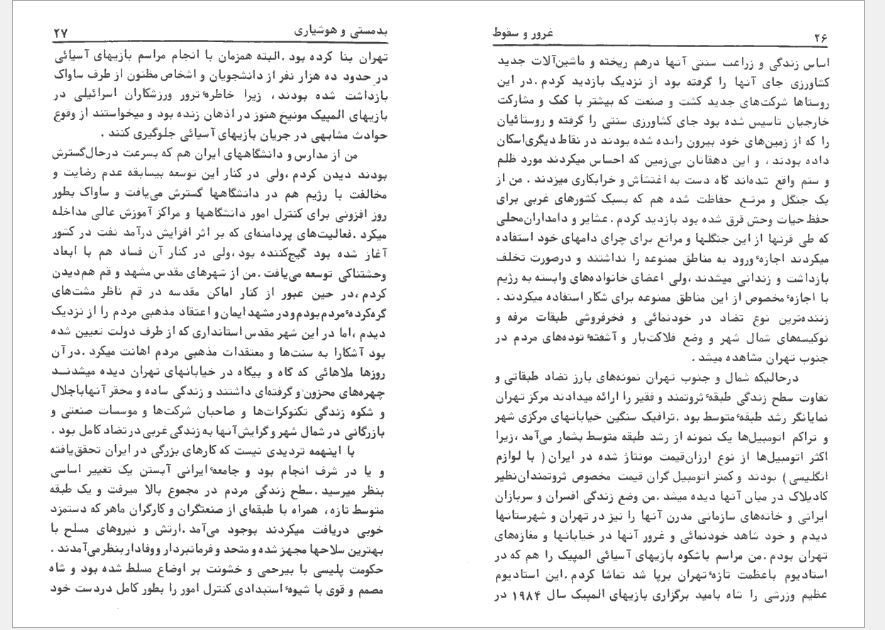 ۲۶
غرور و سقوط
اساس زندگی و زراعت سنتی آنها درهم ریخته و ماشین‌آلات جدید
کشاورزی جای آنها را گرفته بود از نزدیک بازدید کردم . در این
روستاها شرکت‌های جدید کشت و صنعت که بیشتر با کمک و مشارکت
خارجیان تاسیس شده بود جای کشاورزی سنتی را گرفته و روستائیان
را که از زمین‌های خود بیرون رانده شده بودند در نقاط دیگری اسکان
داده بودند ، و این دهقانان بی‌زمین که احساس میکردند مورد ظلم
و ستم واقع شده‌اند گاه دست به اغتشاش و خرابکاری میزدند . من از
یک جنگل و مرتع حفاظت شده هم که بسبک کشورهای غربی برای
حفظ حیات وحش قرق شده بود بازدید کردم . عشایر و دامداران محلی
که طی قرنها از این جنگلها و مراتع برای چرای دامهای خود استفاده
میکردند اجازهٔ ورود به مناطق ممنوعه را نداشتند و درصورت تخلف
بازداشت و زندانی میشدند ، ولی اعضای خانواده‌های وابسته به رژیم
با اجازهٔ مخصوص از این مناطق ممنوعه برای شکار استفاده میکردند .
زننده‌ترین نوع تضاد در خودنمائی و فخرفروشی طبقات مرفه و
نوکیسه‌های شمال شهر و وضع فلاکت‌بار و آشفتهٔ توده‌های مردم در
جنوب تهران مشاهده میشد .
درحالیکه شمال و جنوب تهران نمونه‌های بارز تضاد طبقاتی و
تفاوت سطح زندگی طبقهٔ ثروتمند و فقیر را ارائه میدادند مرکز تهران
نمایانگر رشد طبقهٔ متوسط بود . ترافیک سنگین خیابانهای مرکزی شهر
و تراکم اتومبیل‌ها یک نمونه از رشد طبقه متوسط بشمار می‌آمد ، زیرا
اکثر اتومبیل‌ها از نوع ارزان‌قیمت مونتاژ شده در ایران ( با لوازم
انگلیسی ) بودند و کمتر اتومبیل گران قیمت مخصوص ثروتمندان نظیر
کادیلاک در میان آنها دیده میشد . من وضع زندگی افسران و سربازان
ایرانی و خانه‌های سازمانی مدرن آنها را نیز در تهران و شهرستانها
دیدم و خود شاهد خودنمائی و غرور آنها در خیابانها و مغازه‌های
تهران بودم . من مراسم باشکوه بازیهای آسیائی المپیک را هم که در
استادیوم باعظمت تازهٔ تهران برپا شد تماشا کردم . این استادیوم
عظیم ورزشی را شاه بامید برگزاری بازیهای المپیک سال ۱۹۸۴ در
بدمستی و هوشیاری
۲۷
تهران بنا کرده بود . البته همزمان با انجام مراسم بازیهای آسیائی
در حدود ده هزار نفر از دانشجویان و اشخاص مظنون از طرف ساواک
بازداشت شده بودند ، زیرا خاطرهٔ ترور ورزشکاران اسرائیلی در
بازیهای المپیک مونیخ هنوز در اذهان زنده بود و میخواستند از وقوع
حوادث مشابهی در جریان بازیهای آسیائی جلوگیری کنند .
من از مدارس و دانشگاههای ایران هم که بسرعت درحال گسترش
بودند دیدن کردم ، ولی در کنار این توسعه بیسابقه عدم رضایت و
مخالفت با رژیم هم در دانشگاهها گسترش می‌یافت و ساواک بطور
روز افزونی برای کنترل امور دانشگاهها و مراکز آموزش عالی مداخله
میکرد . فعالیت‌های پردامنه‌ای که بر اثر افزایش درآمد نفت در کشور
آغاز شده بود گیج‌کننده بود ، ولی در کنار آن فساد هم با ابعاد
وحشتناکی توسعه می‌یافت . من از شهرهای مقدس مشهد و قم هم دیدن
کردم ، در حین عبور از کنار اماکن مقدسه در قم ناظر مشت‌های
گره‌کردهٔ مردم بودم و در مشهد ایمان و اعتقاد مذهبی مردم را از نزدیک
دیدم ، اما در این شهر مقدس استانداری که از طرف دولت تعیین شده
بود آشکارا به سنت‌ها و معتقدات مذهبی مردم اهانت میکرد . در آن
روزها ملاهائی که گاه و بیگاه در خیابانهای تهران دیده میشدند
چهره‌های محزون و گرفته‌ای داشتند و زندگی ساده و محقر آنها باجلال
و شکوه زندگی تکنوکرات‌ها و صاحبان شرکت‌ها و موسسات صنعتی و
بازرگانی در شمال شهر و گرایش آنها به زندگی غربی در تضاد کامل بود .
با اینهمه تردیدی نیست که کارهای بزرگی در ایران تحقق یافته
و یا در شرف انجام بود و جامعهٔ ایرانی آبستن یک تغییر اساسی
بنظر میرسید . سطح زندگی مردم در مجموع بالا میرفت و یک طبقه
متوسط تازه ، همراه با طبقه‌ای از صنعتگران و کارگران ماهر که دستمزد
خوبی دریافت میکردند بوجود می‌آمد . ارتش و نیروهای مسلح با
بهترین سلاحها مجهز شده و متحد و فرمانبردار و وفادار بنظر می‌آمدند .
حکومت پلیسی با بیرحمی و خشونت بر اوضاع مسلط شده بود و شاه
مصمم و قوی با شیوهٔ استبدادی کنترل امور را بطور کامل دردست خود